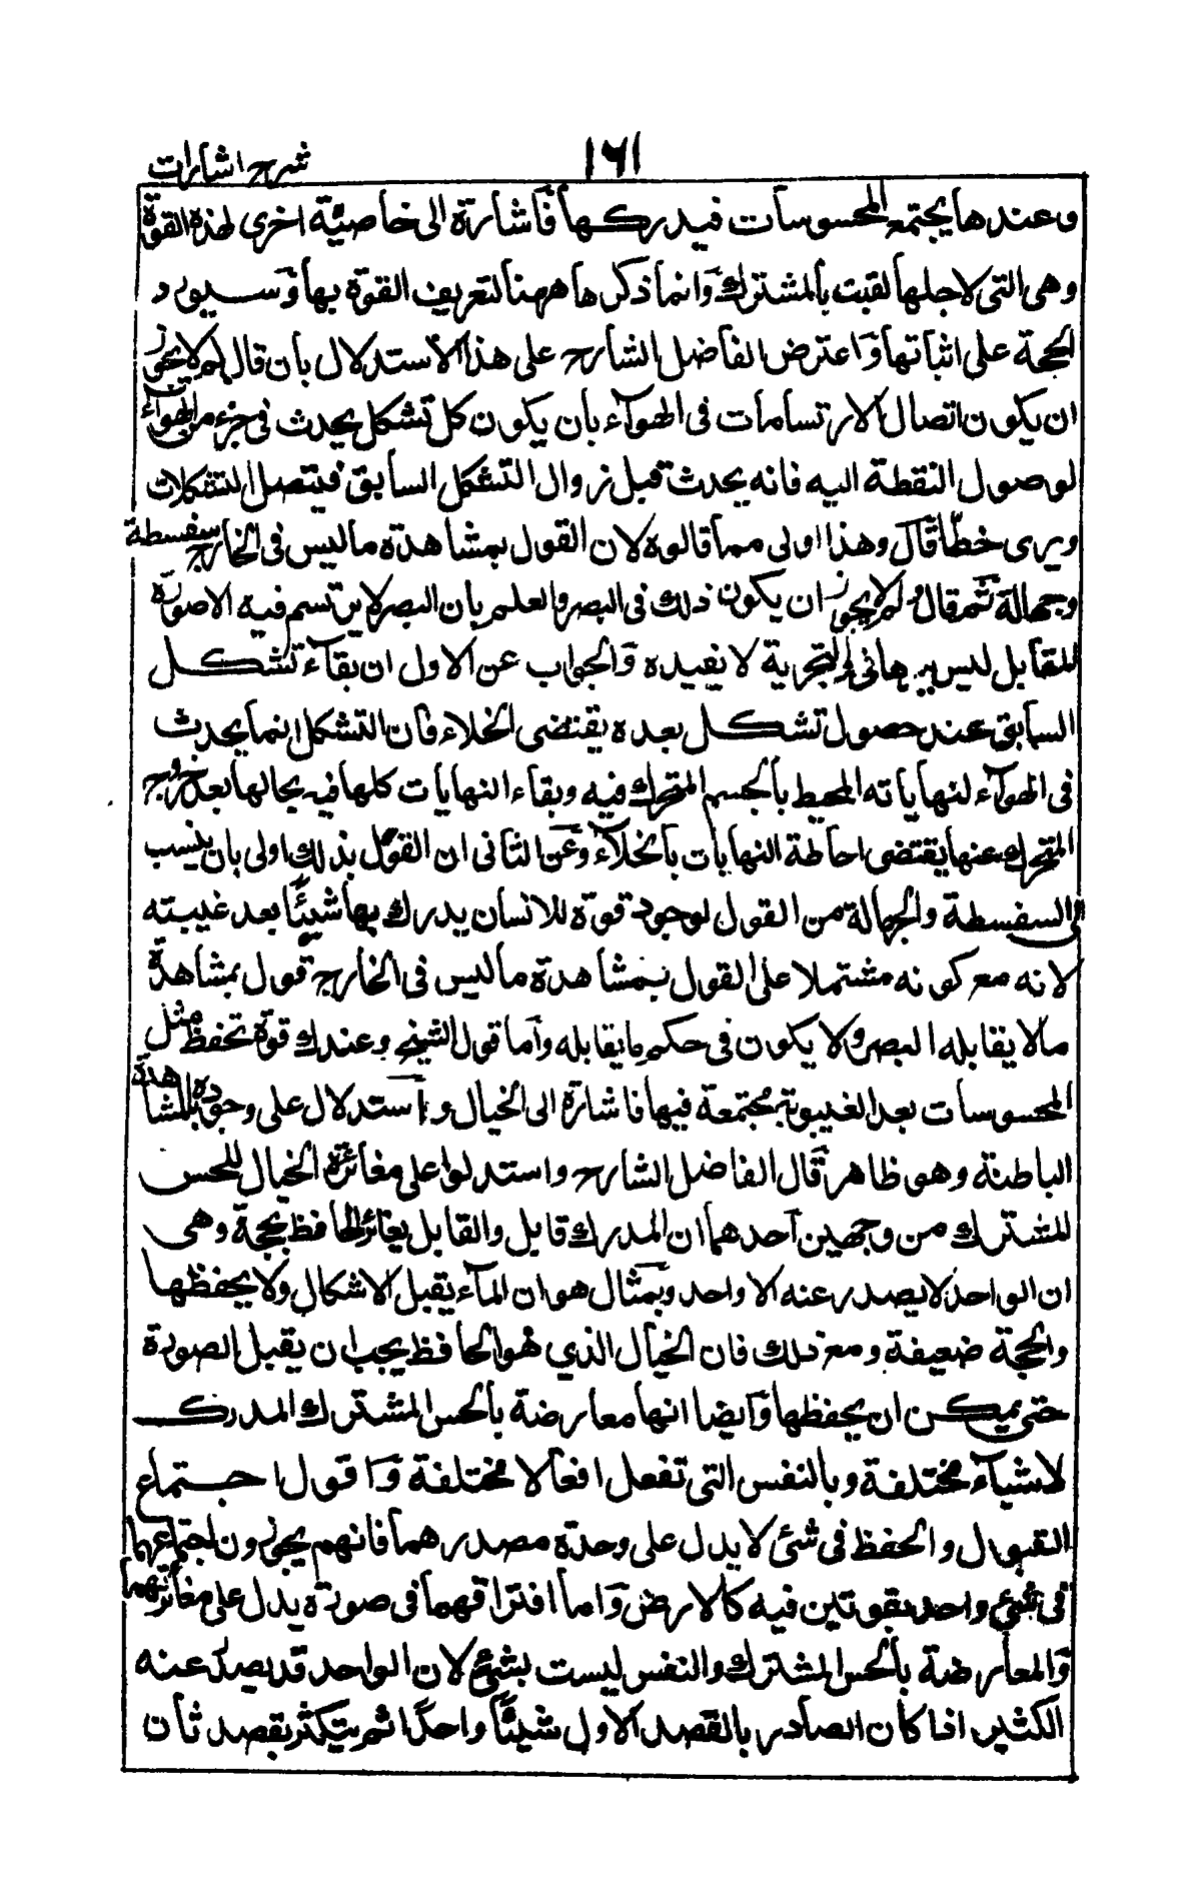 ١٦١
شرح اشارات
وعندها يجتمع المحسوسات فيدركها فاشارة الى خاصيّة اخرى لهذه القوة
وهى التى لاجلها لقبت بالمشترك وانما ذكرها ههنا لتعريف القوة بها وسيورد
الحجة على اثباتها واعترض الفاضل الشارح على هذا الاستدلال بان قال لم لا يجوز
ان يكون اتصال الارتسامات فى الهواء بان يكون كل تشكل يحدث فى جزء من الهواء
لوصول النقطة اليه فانه يحدث قبل زوال التشكل السابق فيتصل التشكلات
ويرى خطّا قال وهذا اولى مما قالوه لان القول بمشاهدة ما ليس فى الخارج سفسطة
وجهالة ثم قال ولم لا يجوز ان يكون ذلك فى البصر والعلم بان البصر لا يرتسم فيه الا صورة
المقابل ليس برهانى اذ التجربة لا نفيده والجواب عن الاول ان بقاء تشكل
السابق عند حصول تشكل بعده يقتضى الخلاء فان التشكل انما يحدث
فى الهواء لنهاياته المحيط بالجسم المتحرك فيه وبقاء النهايات كلها فيه بحالها بعد خروج
المتحرك عنها يقتضى احاطة النهايات بالخلاء وعن الثانى ان القول بذلك اولى بان ينسب
الى السفسطة والجهالة من القول لوجود قوة للانسان يدرك بها شيئًا بعد غيبته
لانه مع كونه مشتملا على القول بمشاهدة ما ليس فى الخارج قول بمشاهدة
ما لا يقابله البصر ولا يكون فى حكم ما يقابله وأما قول الشيخ وعندك قوة تحفظ مثل
المحسوسات بعد الغيبوبة مجتمعة فيها فاشارة الى الخيال واستدلال على وجوده بالمشاهدة
الباطنة وهو ظاهر قال الفاضل الشارح واستدلوا على مغائرة الخيال للحس
المشترك من وجهين احدهما ان المدرك قابل والقابل يغائر الحافظ بحجة وهى
ان الواحد لا يصدر عنه الا واحد وبمثال هو ان الماء يقبل الاشكال ولا يحفظها
والحجة ضعيفة ومع ذلك فان الخيال الذي هو الحافظ يجب ان يقبل الصورة
حتى يمكن ان يحفظها وايضا انها معارضة بالحس المشترك المدرك
لاشياء مختلفة وبالنفس التى تفعل افعالا مختلفة واقول اجتماع
القبول والحفظ فى شئ لا يدل على وحدة مصدرهما فانهم يجوزون اجتماعهما
فى شئ واحد بقوتين فيه كالارض واما افتراقهما فى صورة يدل على مغائرتهما
والمعارضة بالحس المشترك والنفس ليست بشئ لان الواحد قد يصدر عنه
الكثير اذا كان الصادر بالقصد الاول شيئًا واحدًا ثم يتكثر بقصد ثان